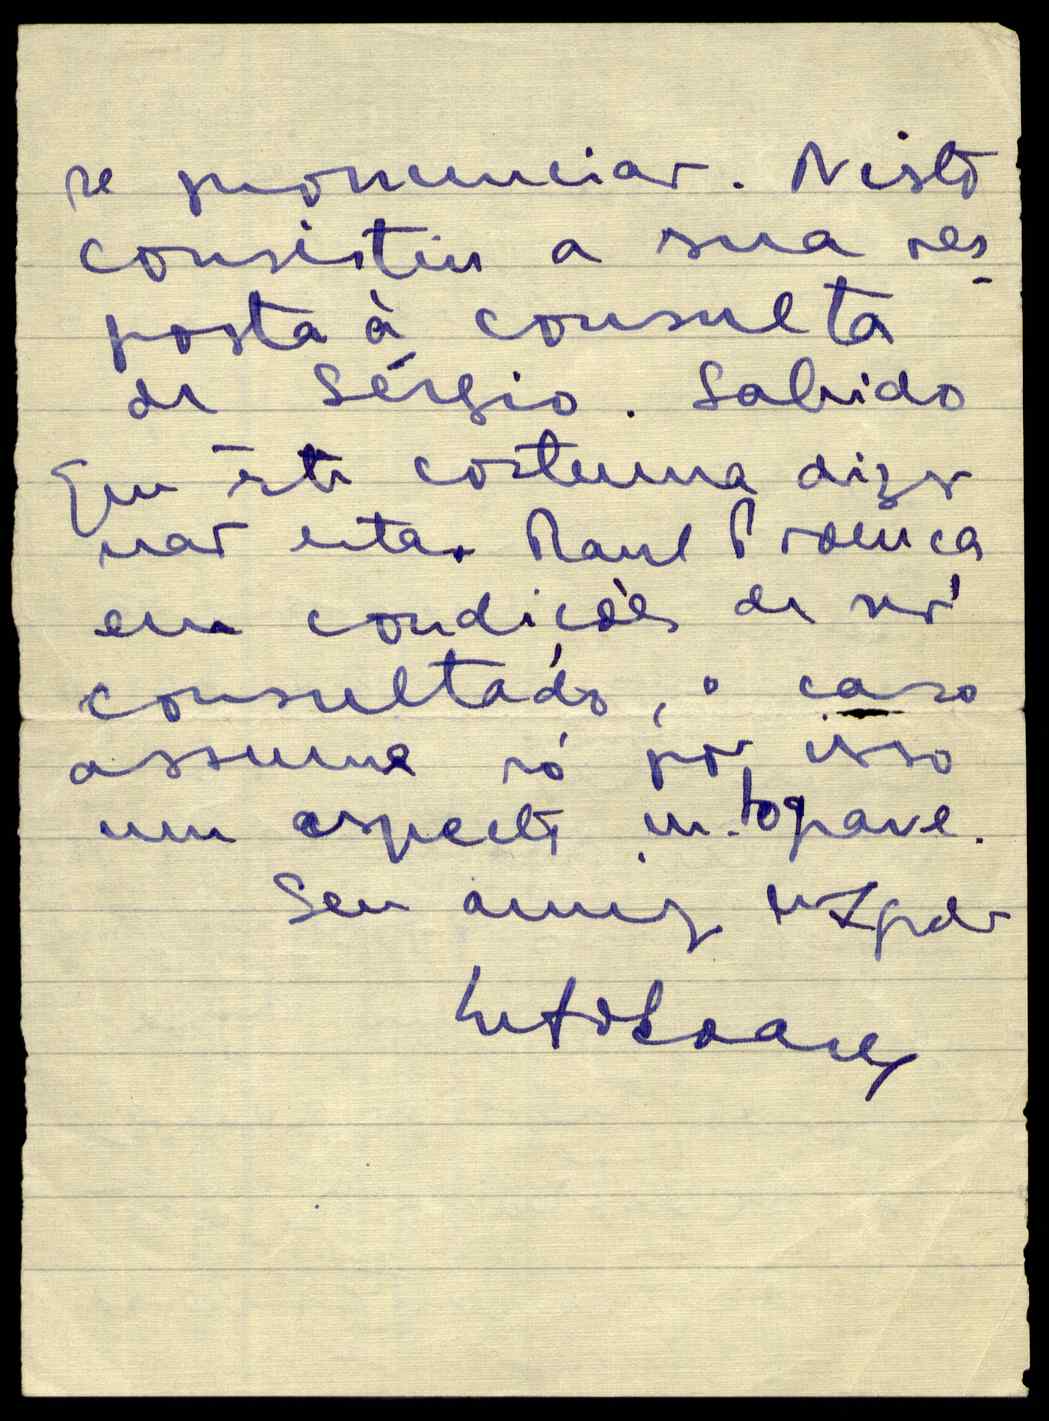 se pronunciar. Nisto
consistiu a sua res-
posta à consulta
de Sérgio. Sabido
que êste costuma dizer
não estar Raul Proença
em condições de ser
consultado, o caso
assume só por isso
um aspecto mto grave.
Seu amigo